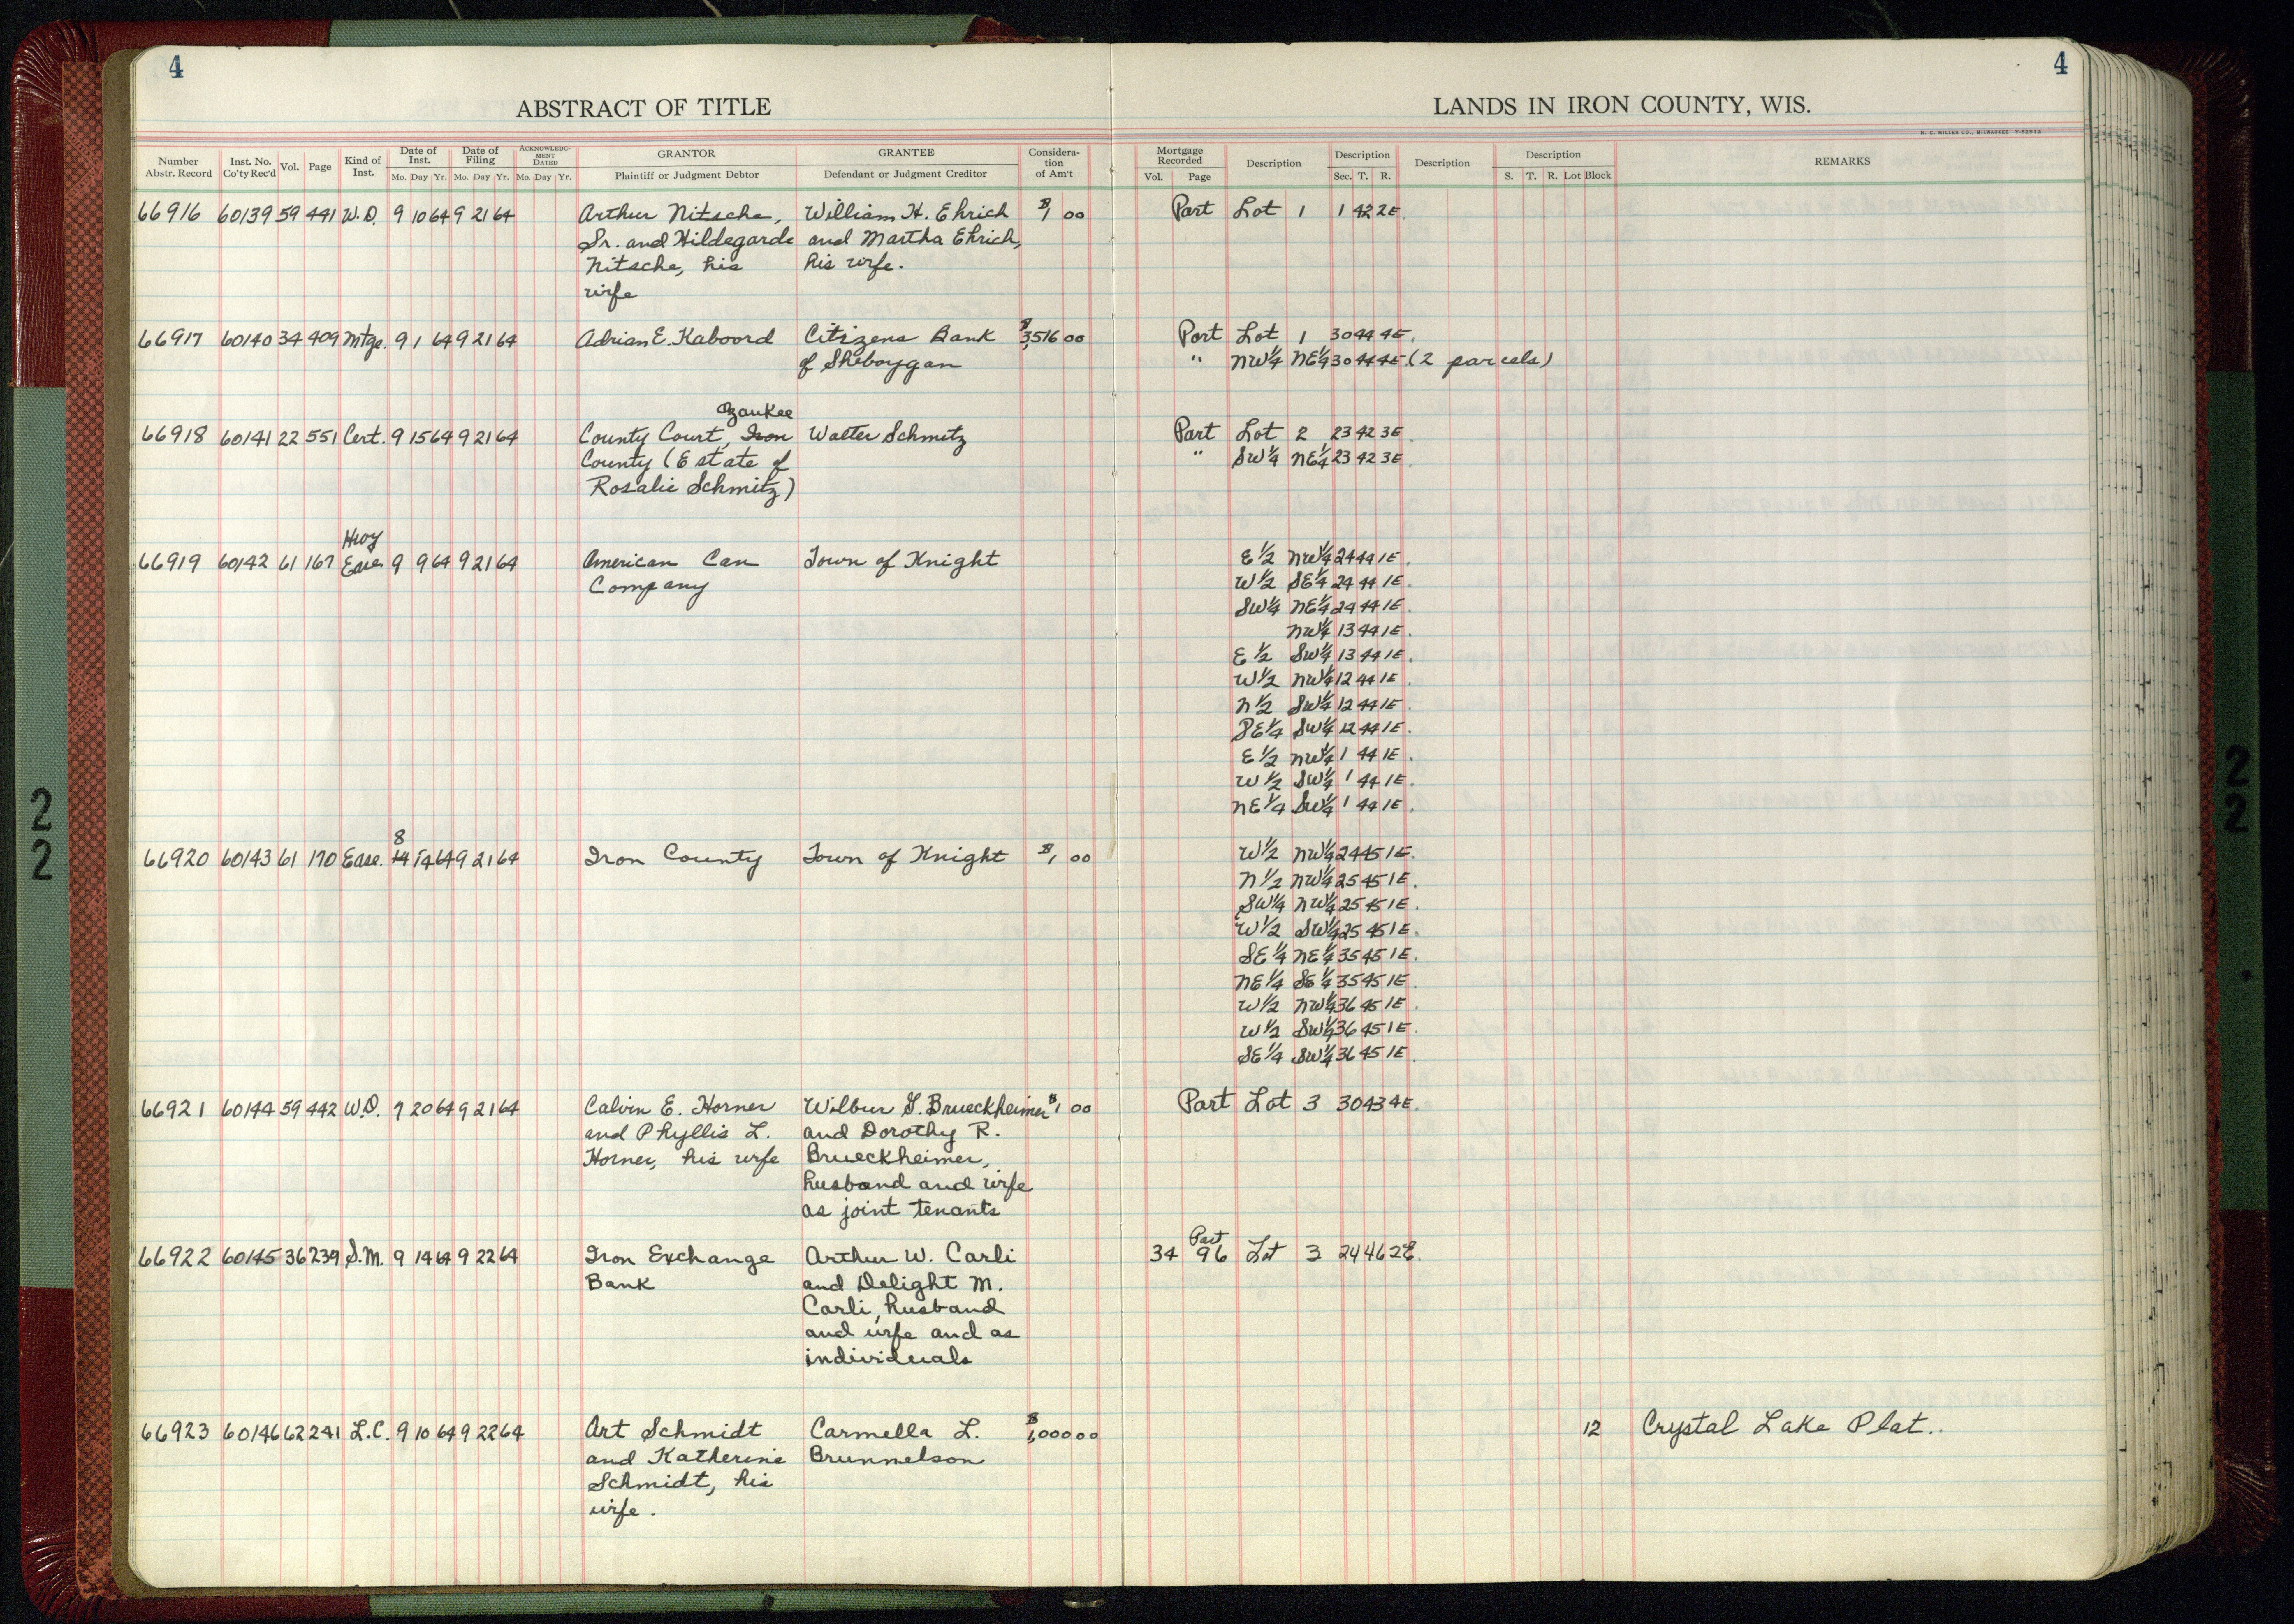 4
4
ABSTRACT OF TITLE
LANDS IN IRON COUNTY, WIS.
H. C. MILLER CO., MILWAUKEE
Number Abstr. Record Inst. No. Co'ty Rec'd Vol. Page Kind of Inst. Date of Inst. Mo. Day Yr. Date of Filing Mo. Day Yr. ACKNOWLEDGMENT DATED Mo. Day Yr. GRANTOR Plaintiff or Judgment Debtor GRANTEE Defendant or Judgment Creditor Consideration of Am't Mortgage Recorded Vol. Page Description Description Sec. T. R. Description Description S. T. R. Lot Block REMARKS
66916 60139 59 441 W.D. 9 10 64 9 21 64 Arthur Nitsche, William H. Ehrich $1 00 Part Lot 1 1 42 2E.
Sr. and Hildegarde and Martha Ehrich,
Nitsche, his his wife.
wife
66917 60140 34 409 Mtge. 9 1 64 9 21 64 Adrian E. Kaboord Citizens Bank $3,516 00 Part Lot 1 30 44 4E.
of Sheboygan " NW¼ NE¼ 30 44 4E. (2 parcels)
Ozaukee
66918 60141 22 551 Cert. 9 15 64 9 21 64 County Court, Iron Walter Schmitz Part Lot 2 23 42 3E.
County (Estate of " SW¼ NE¼ 23 42 3E.
Rosalie Schmitz)
Hwy
66919 60142 61 167 Ease. 9 9 64 9 21 64 American Can Town of Knight E½ NW¼ 24 44 1E.
Company W½ SE¼ 24 44 1E.
SW¼ NE¼ 24 44 1E.
NW¼ 13 44 1E.
E½ SW¼ 13 44 1E.
W½ NW¼ 12 44 1E.
N½ SW¼ 12 44 1E.
SE¼ SW¼ 12 44 1E.
E½ NW¼ 1 44 1E.
W½ SW¼ 1 44 1E.
NE¼ SW¼ 1 44 1E.
8
66920 60143 61 170 Ease. 14 14 64 9 21 64 Iron County Town of Knight $1 00 W½ NW¼ 24 45 1E.
N½ NW¼ 25 45 1E.
SW¼ NW¼ 25 45 1E.
W½ SW¼ 25 45 1E.
SE¼ NE¼ 35 45 1E.
NE¼ SE¼ 35 45 1E.
W½ NW¼ 36 45 1E.
W½ SW¼ 36 45 1E.
SE¼ SW¼ 36 45 1E.
66921 60144 59 442 W.D. 9 20 64 9 21 64 Calvin E. Horner Wilbur G. Brueckheimer $1 00 Part Lot 3 30 43 4E.
and Phyllis L. and Dorothy R.
Horner, his wife Brueckheimer,
husband and wife
as joint tenants
Part
66922 60145 36 239 S.M. 9 14 64 9 22 64 Iron Exchange Arthur W. Carli 34 96 Lot 3 24 46 2E.
Bank and Delight M.
Carli, husband
and wife and as
individuals
66923 60146 62 241 L.C. 9 10 64 9 22 64 Art Schmidt Carmella L. $1,000 00 12 Crystal Lake Plat..
and Katherine Brunnelson
Schmidt, his
wife.
22
22.